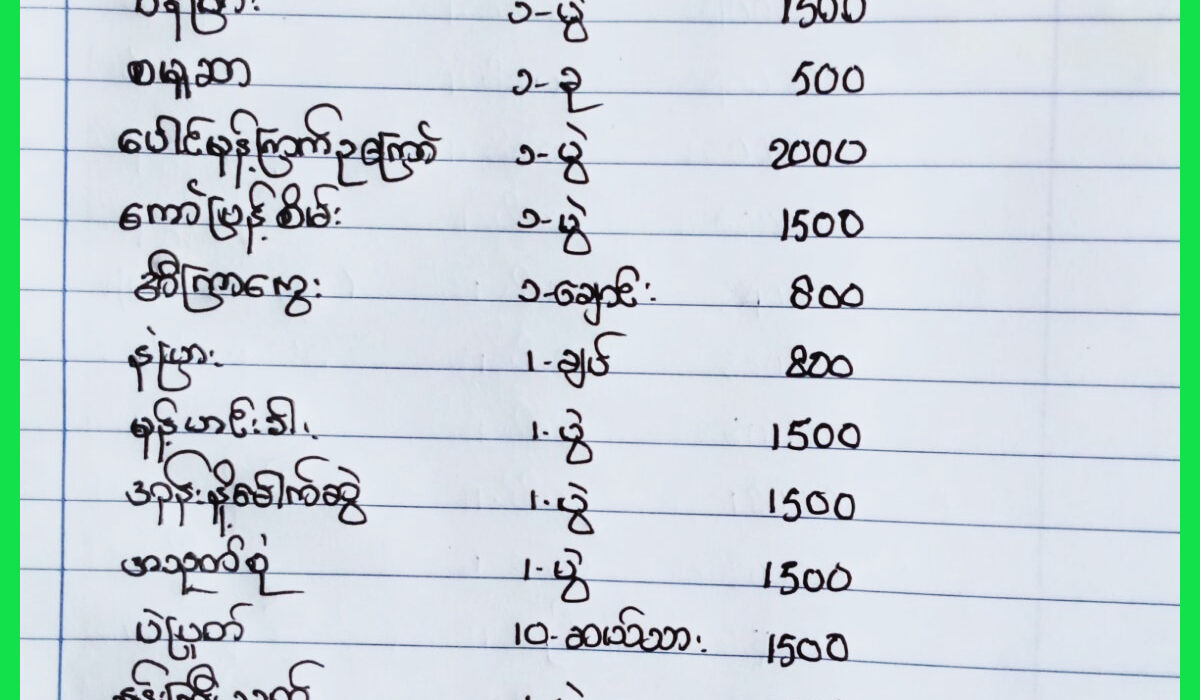 ၁-ပွဲ 1500
စမူဆာ ၁-ခု 500
ပေါင်မုန့်ကြက်ဥကြော် ၁-ပွဲ 2000
ကော်ပြန့်စိမ်း ၁-ပွဲ 1500
အီကြာကွေး ၁-ချောင်း 800
နံပြား 1-ချပ် 800
မုန့်ဟင်းခါး 1-ပွဲ 1500
အုန်းနို့ခေါက်ဆွဲ 1-ပွဲ 1500
အသုတ်စုံ 1-ပွဲ 1500
ပဲပြုတ် 10-ဆယ်သား 1500